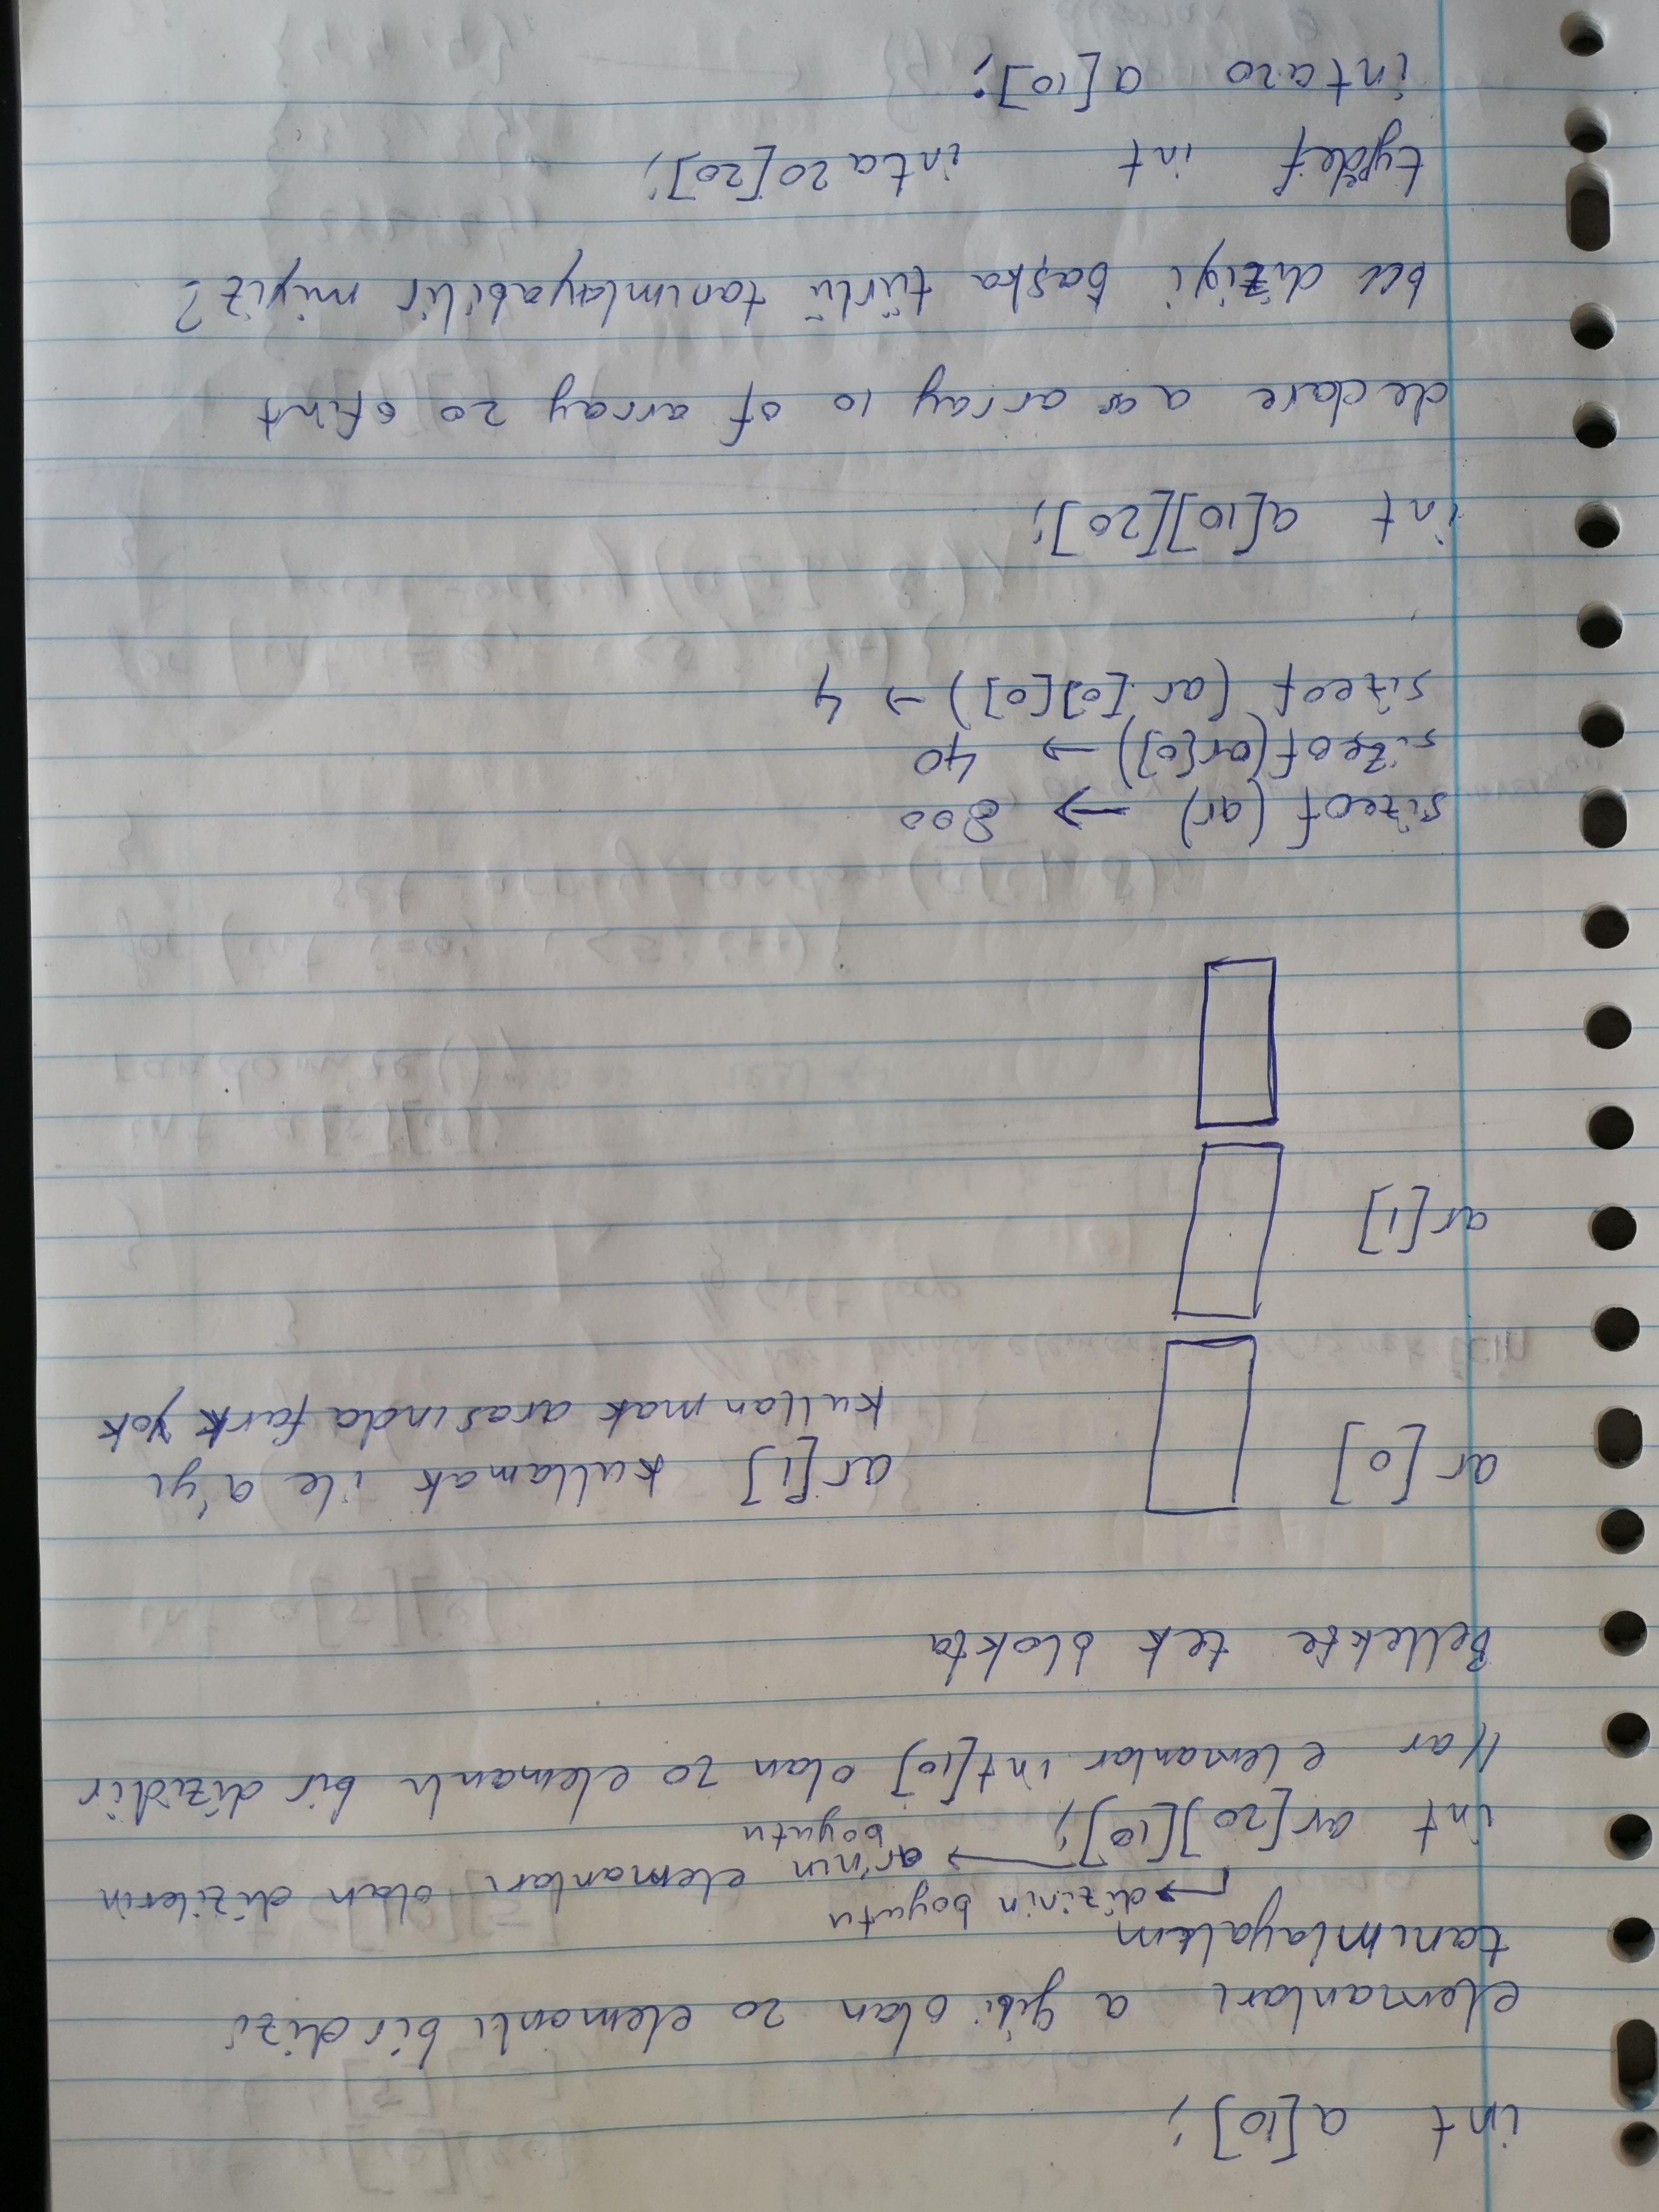 int a[10];
elemanları a gibi olan 20 elemanlı bir dizi
tanımlayalım
dizinin boyutu
int ar[20][10]; ar'nın elemanları olan dizilerin
boyutu
// ar elemanlar int[10] olan 20 elemanlı bir dizidir
Bellekte tek blokta
ar[0]
ar[1] kullamak ile a'yı
kullanmak arasında fark yok
ar[1]
sizeof (ar) → 800
sizeof(ar[0]) → 40
sizeof (ar [0][0]) → 4
int a[10][20];
declare a as array 10 of array 20 of int
bu diziyi başka türlü tanımlayabilir miyiz?
typedef int inta20[20];
inta20 a[10];